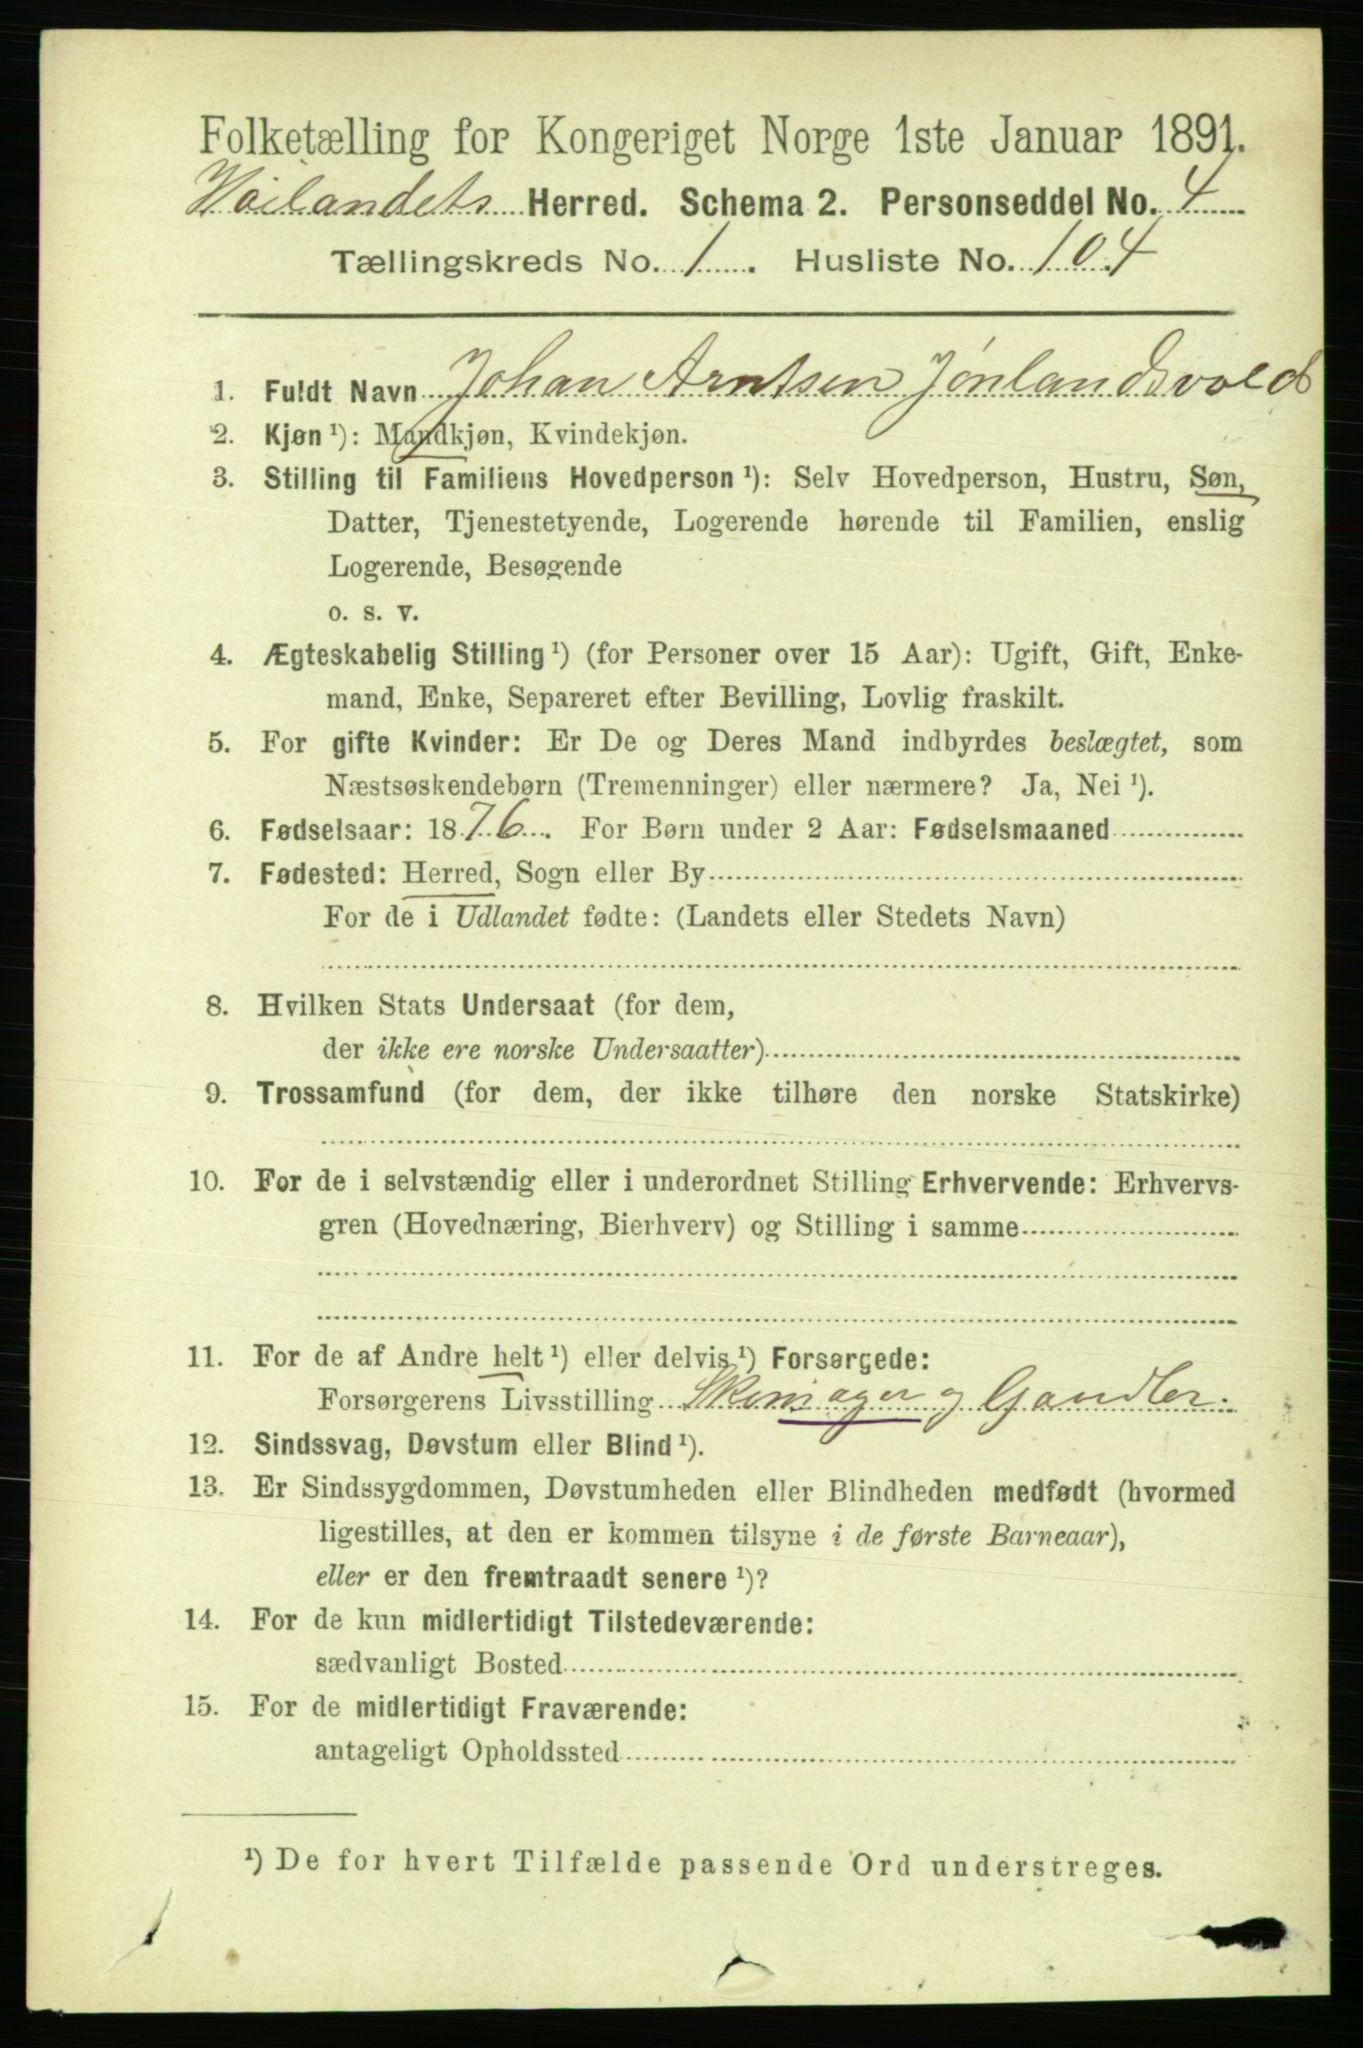 Folketælling for Kongeriget Norge 1ste Januar 1891.
Høilandets Herred. Schema 2. Personseddel No. 4
Tællingskreds No. 1. Husliste No. 104
1. Fuldt Navn Johan Arntsen Jónlandsvold
2. Kjøn ¹): Mandkjøn, Kvindekjøn.
3. Stilling til Familiens Hovedperson ¹): Selv Hovedperson, Hustru, Søn,
Datter, Tjenestetyende, Logerende hørende til Familien, enslig
Logerende, Besøgende
o. s. v.
4. Ægteskabelig Stilling ¹) (for Personer over 15 Aar): Ugift, Gift, Enke-
mand, Enke, Separeret efter Bevilling, Lovlig fraskilt.
5. For gifte Kvinder: Er De og Deres Mand indbyrdes beslægtet, som
Næstsøskendebørn (Tremenninger) eller nærmere? Ja, Nei ¹).
6. Fødselsaar: 1876. For Børn under 2 Aar: Fødselsmaaned
7. Fødested: Herred, Sogn eller By
For de i Udlandet fødte: (Landets eller Stedets Navn)
8. Hvilken Stats Undersaat (for dem,
der ikke ere norske Undersaatter)
9. Trossamfund (for dem, der ikke tilhøre den norske Statskirke)
10. For de i selvstændig eller i underordnet Stilling Erhvervende: Erhvervs-
gren (Hovednæring, Bierhverv) og Stilling i samme
11. For de af Andre helt ¹) eller delvis ¹) Forsørgede:
Forsørgerens Livsstilling og
12. Sindssvag, Døvstum eller Blind ¹).
13. Er Sindssygdommen, Døvstumheden eller Blindheden medfødt (hvormed
ligestilles, at den er kommen tilsyne i de første Barneaar),
eller er den fremtraadt senere ¹)?
14. For de kun midlertidigt Tilstedeværende:
sædvanligt Bosted
15. For de midlertidigt Fraværende:
antageligt Opholdssted
¹) De for hvert Tilfælde passende Ord understreges.